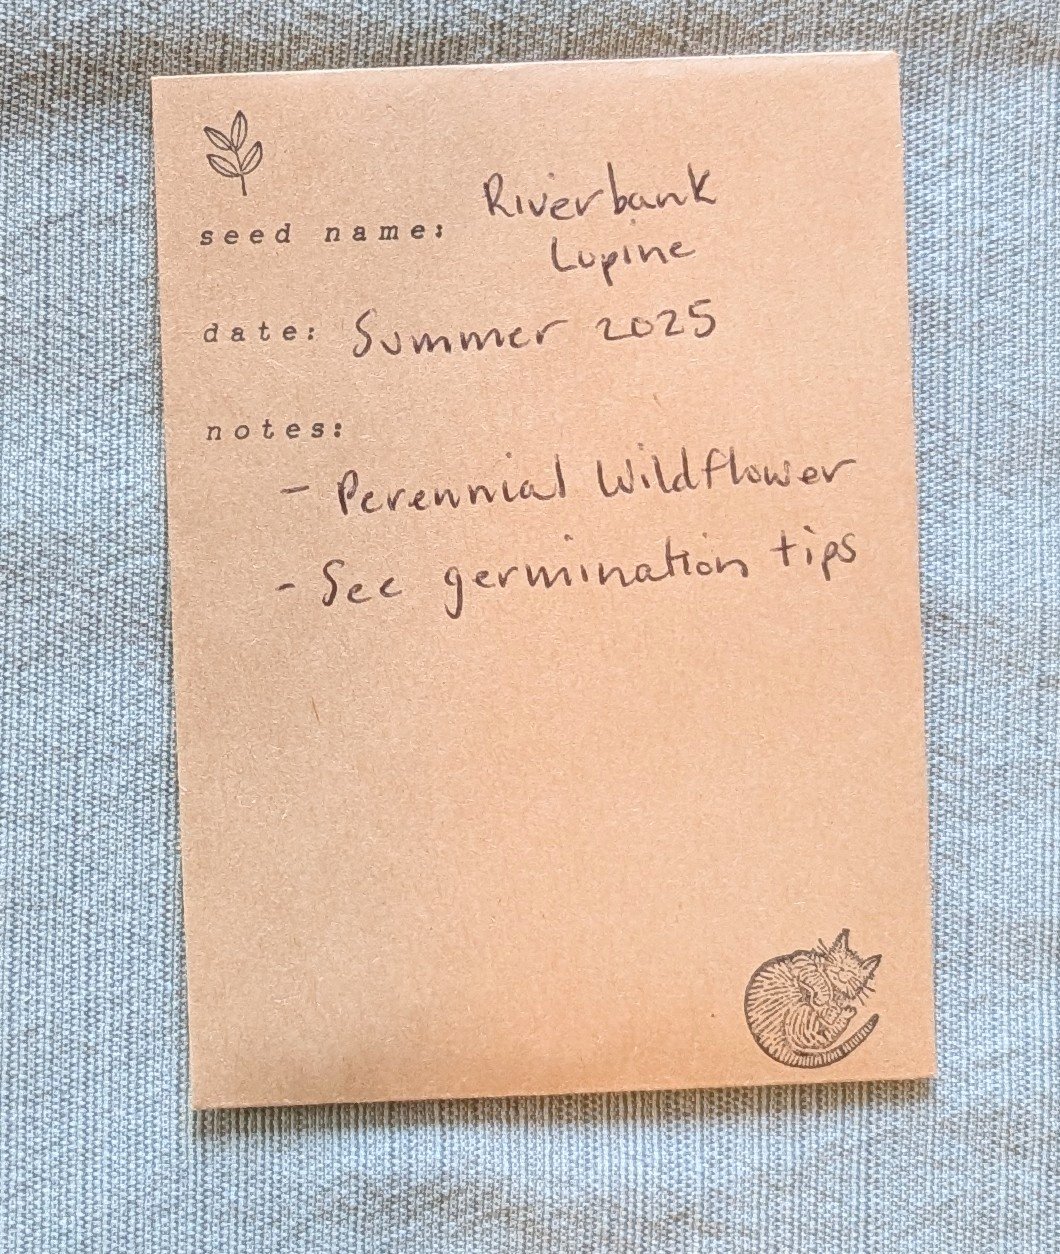 Riverbank
seed name: Lupine
date: Summer 2025
notes:
- Perennial Wildflower
- See germination tips